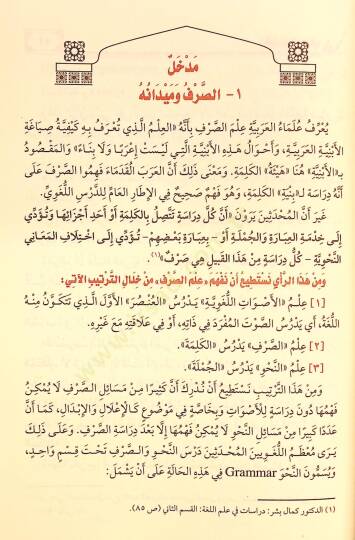 مَدْخَلٌ
١- الصَّرْفُ وَمَيْدَانُهُ
يُعَرِّفُ عُلَمَاءُ العَرَبِيَّةِ عِلْمَ الصَّرْفِ بِأَنَّهُ «العِلْمُ الَّذِي تُعْرَفُ بِهِ كَيْفِيَّةُ صِيَاغَةِ
الأَبْنِيَةِ العَرَبِيَّةِ، وَأَحْوَالُ هَذِهِ الأَبْنِيَةِ الَّتِي لَيْسَتْ إِعْرَابًا وَلَا بِنَاءً» وَالمَقْصُودُ
بِـ«الأَبْنِيَةِ» هُنَا «هَيْئَةُ» الكَلِمَةِ. وَمَعْنَى ذَلِكَ أَنَّ العَرَبَ القُدَمَاءَ فَهِمُوا الصَّرْفَ عَلَى
أَنَّهُ دِرَاسَةٌ لـ«بِنْيَةِ» الكَلِمَةِ، وَهُوَ فَهْمٌ صَحِيحٌ فِي الإِطَارِ العَامِّ لِلدَّرْسِ اللُّغَوِيِّ.
غَيْرَ أَنَّ المُحْدَثِينَ يَرَوْنَ «أَنَّ كُلَّ دِرَاسَةٍ تَتَّصِلُ بِالكَلِمَةِ أَوْ أَحَدِ أَجْزَائِهَا وَتُؤَدِّي
إِلَى خِدْمَةِ العِبَارَةِ وَالجُمْلَةِ أَوْ - بِعِبَارَةِ بَعْضِهِمْ - تُؤَدِّي إِلَى اخْتِلَافِ المَعَانِي
النَّحْوِيَّةِ - كُلُّ دِرَاسَةٍ مِنْ هَذَا القَبِيلِ هِيَ صَرْفٌ»(١).
وَمِنْ هَذَا الرَّأْيِ نَسْتَطِيعُ أَنْ نَفْهَمَ «عِلْمَ الصَّرْفِ» مِنْ خِلَالِ التَّرْتِيبِ الآتِي:
[١] عِلْمُ «الأَصْوَاتِ اللُّغَوِيَّةِ» يَدْرُسُ «العُنْصُرَ» الأَوَّلَ الَّذِي تَتَكَوَّنُ مِنْهُ
اللُّغَةُ، أَيْ يَدْرُسُ الصَّوْتَ المُفْرَدَ فِي ذَاتِهِ، أَوْ فِي عَلَاقَتِهِ مَعَ غَيْرِهِ.
[٢] عِلْمُ «الصَّرْفِ» يَدْرُسُ «الكَلِمَةَ».
[٣] عِلْمُ «النَّحْوِ» يَدْرُسُ «الجُمْلَةَ».
وَمِنْ هَذَا التَّرْتِيبِ نَسْتَطِيعُ أَنْ نُدْرِكَ أَنَّ كَثِيرًا مِنْ مَسَائِلِ الصَّرْفِ لَا يُمْكِنُ
فَهْمُهَا دُونَ دِرَاسَةٍ لِلأَصْوَاتِ وَبِخَاصَّةٍ فِي مَوْضُوعِ كَالإِعْلَالِ وَالإِبْدَالِ، كَمَا أَنَّ
عَدَدًا كَبِيرًا مِنْ مَسَائِلِ النَّحْوِ لَا يُمْكِنُ فَهْمُهَا إِلَّا بَعْدَ دِرَاسَةِ الصَّرْفِ. وَعَلَى ذَلِكَ
يَرَى مُعْظَمُ اللُّغَوِيِّينَ المُحْدَثِينَ دَرْسَ النَّحْوِ وَالصَّرْفِ تَحْتَ قِسْمٍ وَاحِدٍ،
وَيُسَمُّونَ النَّحْوَ Grammar فِي هَذِهِ الحَالَةِ عَلَى أَنْ يَشْمَلَ:
(١) الدكتور كمال بشر: دراسات في علم اللغة: القسم الثاني (ص ٨٥).